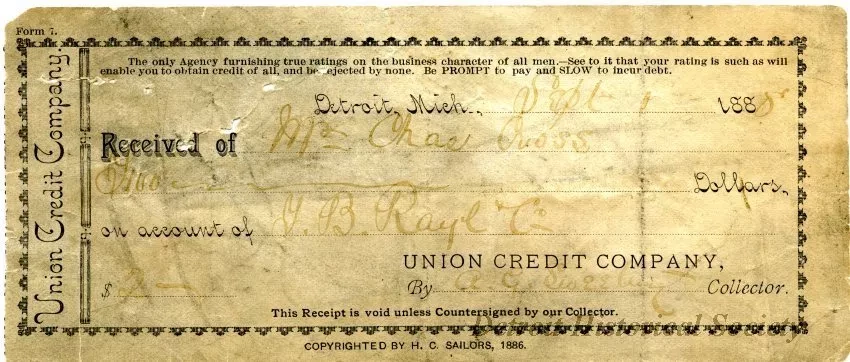 Form 7.
Union Credit Company.
The only Agency furnishing true ratings on the business character of all men.—See to it that your rating is such as will
enable you to obtain credit of all, and be rejected by none. Be PROMPT to pay and SLOW to incur debt.
Detroit, Mich., Sept 1 188
Received of Mrs Chas Ross
Two Dollars,
on account of T. B. Rayl & Co
UNION CREDIT COMPANY,
$ 2 — By Collector.
This Receipt is void unless Countersigned by our Collector.
Detroit Historical Society
COPYRIGHTED BY H. C. SAILORS, 1886.